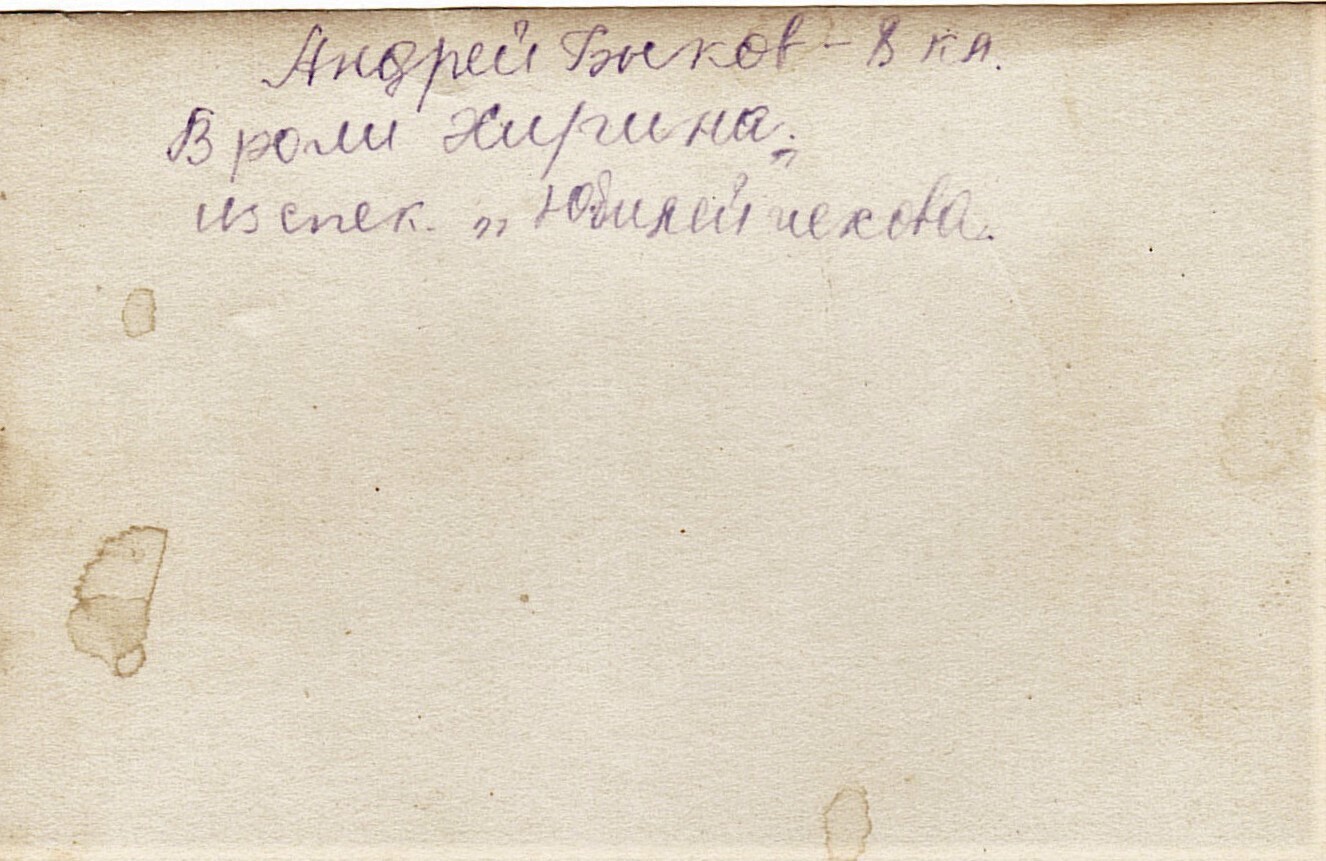 Андрей Быков – 8 кл.
В роли Хирина„
из спек. „Юбилей чехова.